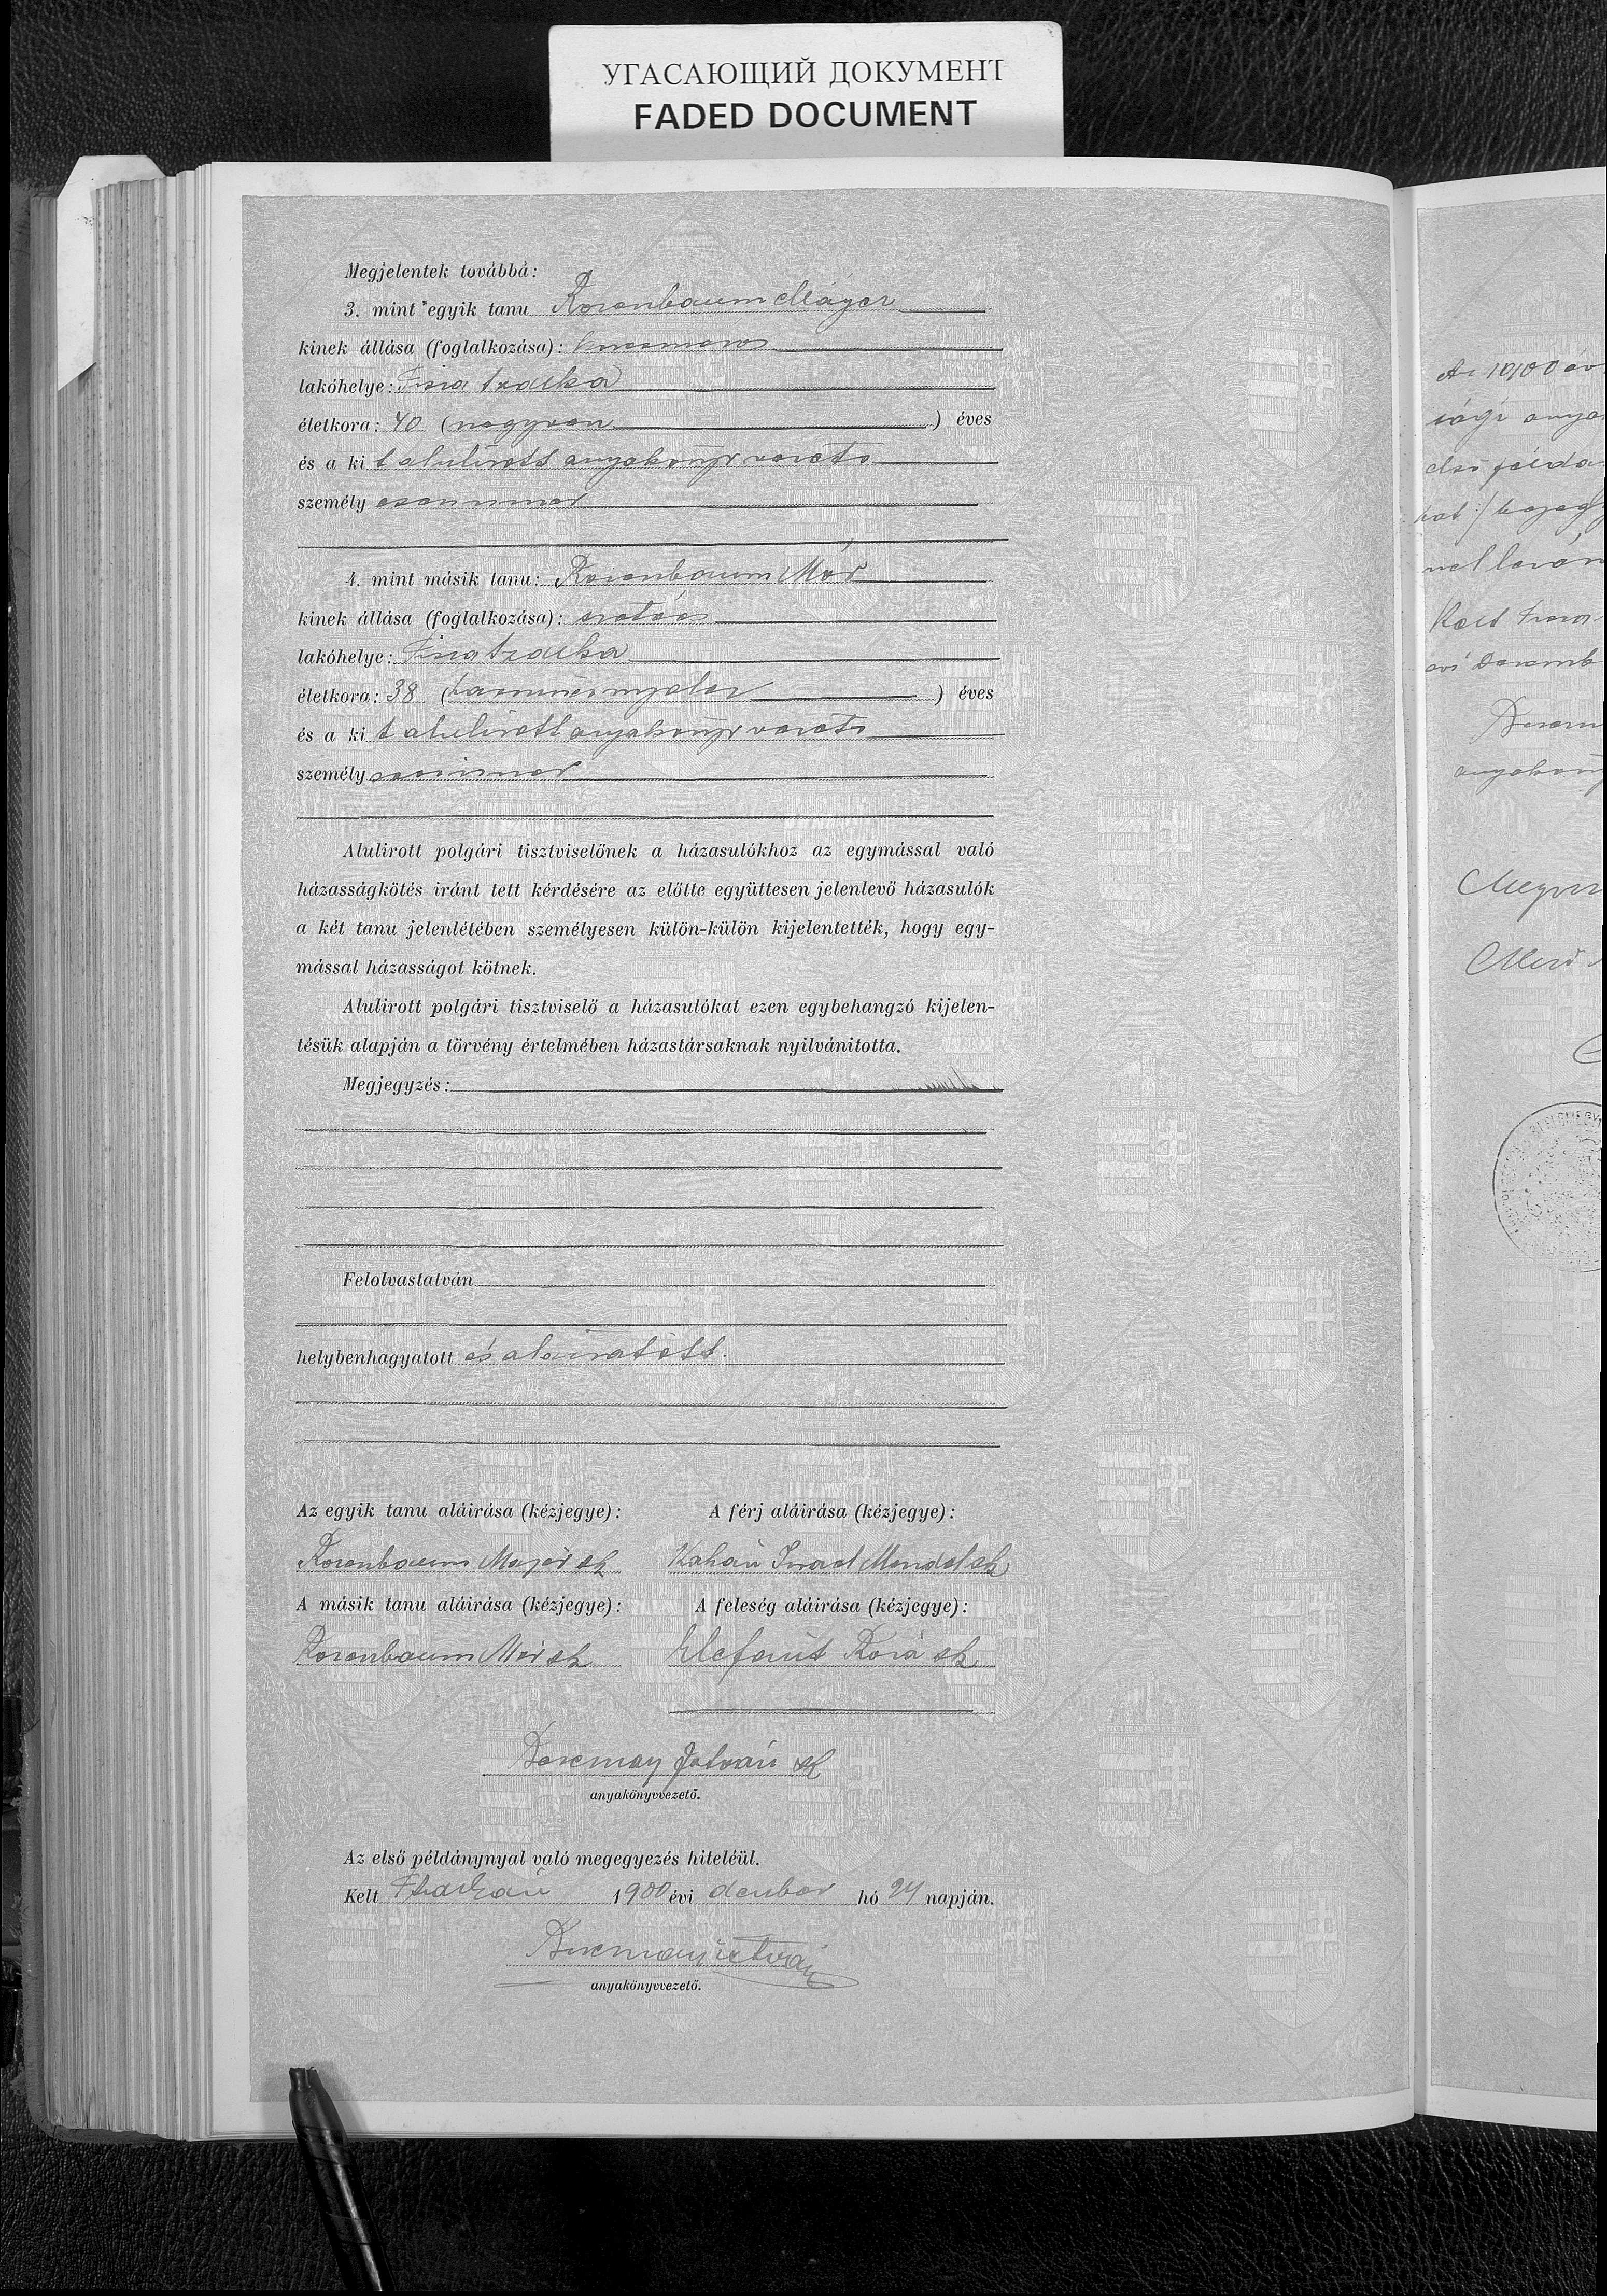 УГАСАЮЩИЙ ДОКУМЕНТ
FADED DOCUMENT
Megjelentek továbbá:
3. mint egyik tanu Rosenbaum Máyer
kinek állása (foglalkozása): korcsmáros
lakóhelye: Tisza
életkora: 40 (negyven) éves
és a ki t alulirott anyakönyvvezető
személy esen ismer
4. mint másik tanu: Rosenbaum Mór
kinek állása (foglalkozása):
lakóhelye: Tisza
életkora: 38 (harmincnyolcz) éves
és a ki t alulirott anyakönyvvezető
személy esen ismer
Alulirott polgári tisztviselőnek a házasulókhoz az egymással való
házasságkötés iránt tett kérdésére az előtte együttesen jelenlevő házasulók
a két tanu jelenlétében személyesen külön-külön kijelentették, hogy egy-
mással házasságot kötnek.
Alulirott polgári tisztviselő a házasulókat ezen egybehangzó kijelen-
tésük alapján a törvény értelmében házastársaknak nyilvánitotta.
Megjegyzés:
Felolvastatván
helybenhagyatott és aláiratott.
Az egyik tanu aláirása (kézjegye): A férj aláirása (kézjegye):
Rosenbaum Majer sk Kahán Israel Mendel sk
A másik tanu aláirása (kézjegye): A feleség aláirása (kézjegye):
Rosenbaum Mór sk Elefánt Róza sk
István sk
anyakönyvvezető.
Az első példánynyal való megegyezés hiteléül.
Kelt 1900 évi hó 24 napján.
István
anyakönyvvezető.